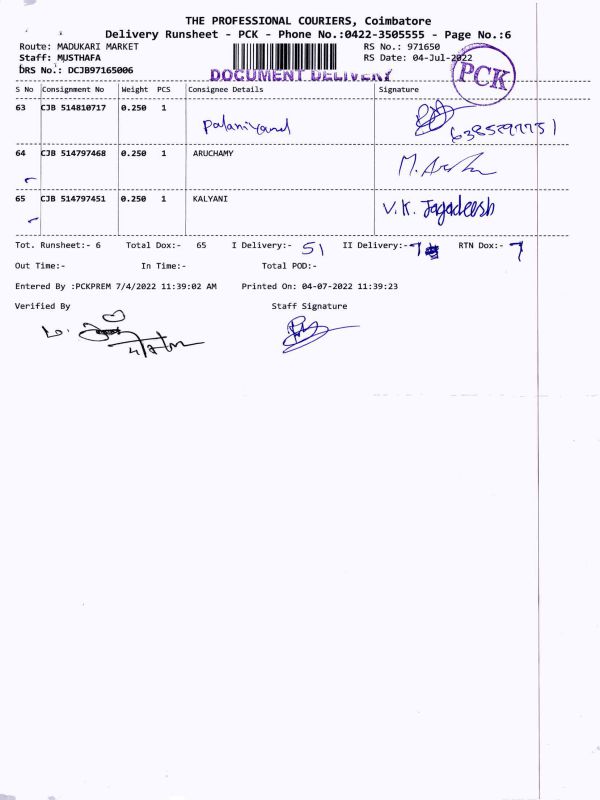 THE PROFESSIONAL COURIERS, Coimbatore
Delivery Runsheet - PCK - Phone No.:0422-3505555 - Page No.:6
Route: MADUKARI MARKET RS No.: 971650
Staff: MUSTHAFA RS Date: 04-Jul-2022
DRS No.: DCJB97165006
DOCUMENT DELIVERY
PCK
S No Consignment No Weight PCS Consignee Details Signature
63 CJB 514810717 0.250 1
64 CJB 514797468 0.250 1 ARUCHAMY
65 CJB 514797451 0.250 1 KALYANI V.K. Jagadeesh
Tot. Runsheet:- 6 Total Dox:- 65 I Delivery:- 51 II Delivery:- 7 RTN Dox:- 7
Out Time:- In Time:- Total POD:-
Entered By :PCKPREM 7/4/2022 11:39:02 AM Printed On: 04-07-2022 11:39:23
Verified By Staff Signature